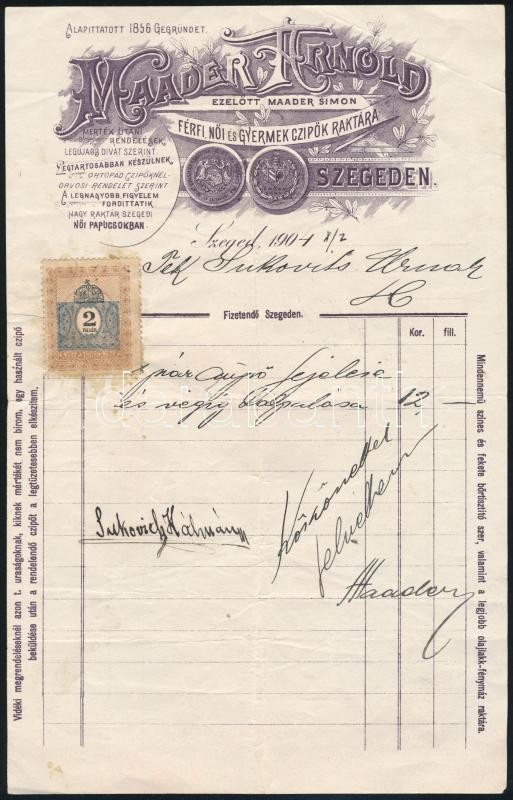 ALAPITTATOTT 1856 GEGRÜNDET.
MAADER ARNOLD
EZELŐTT MAADER SIMON
FÉRFI, NŐI ÉS GYERMEK CZIPŐK RAKTÁRA
SZEGEDEN.
MÉRTÉK UTÁNI
RENDELÉSEK,
LEGUJABB DIVAT SZERINT,
LEGTARTÓSABBAN KÉSZÜLNEK,
ORTOPÁD CZIPŐKNÉL
ORVOSI RENDELET SZERINT
A LEGNAGYOBB FIGYELEM
FORDITTATIK
NAGY RAKTÁR SZEGEDI
NŐI PAPUCSOKBAN.
Szeged, 1904 8/2
Tek Sukovits Urnak
2
FILLÉR
Fizetendő Szegeden.
Kor. fill.
pár czipő fejelése
és végig talpalása 12 —
Köszönettel
felvettem
Maader
Sukovich Kálmán
Vidéki megrendeléseknél azon t. uraságoknak, kiknek mértékét nem birom, egy használt czipő
beküldése után a rendelendő czipőt a legtüzetesebben elkészitem.
Mindennemü szines és fekete bőrtisztitó szer, valamint a legjobb olajlakk-fénymáz raktára.
darabanth